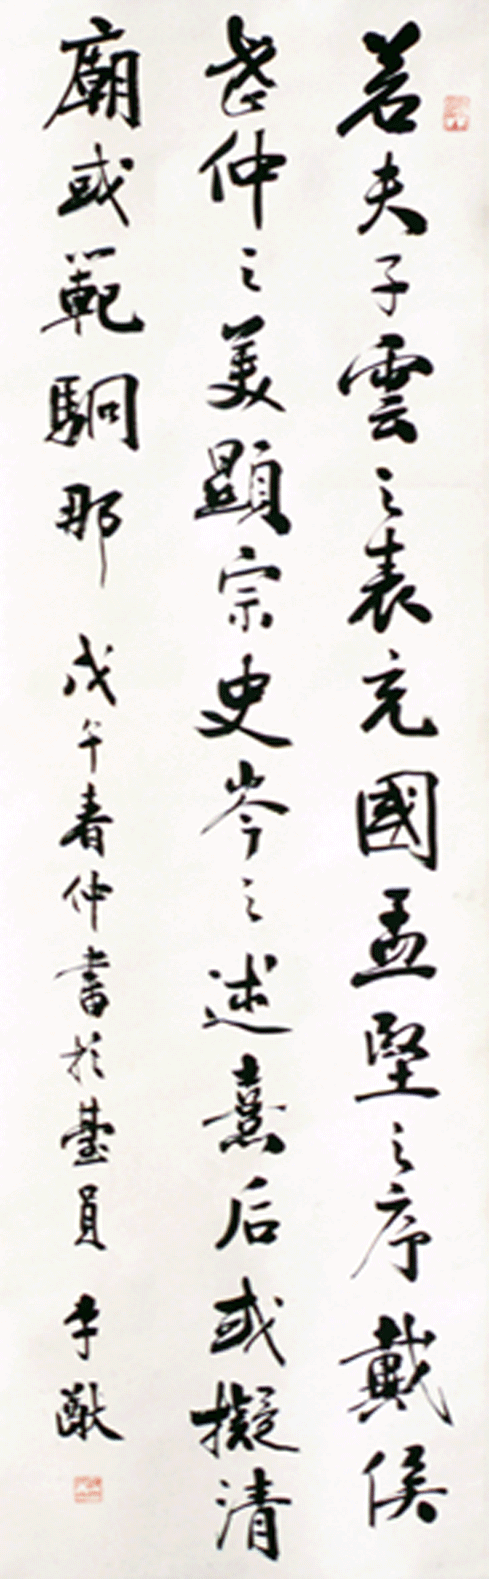 若夫子雲之表充國孟堅之序戴侯
武仲之美顯宗史岑之述熹后或擬清
廟或範駉那 戊午春仲書於臺員 李猷